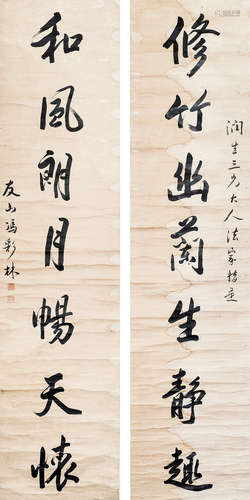 修竹幽蘭生靜趣
潤生三兄大人法家指正
和風朗月暢天懷
友山馮彩林